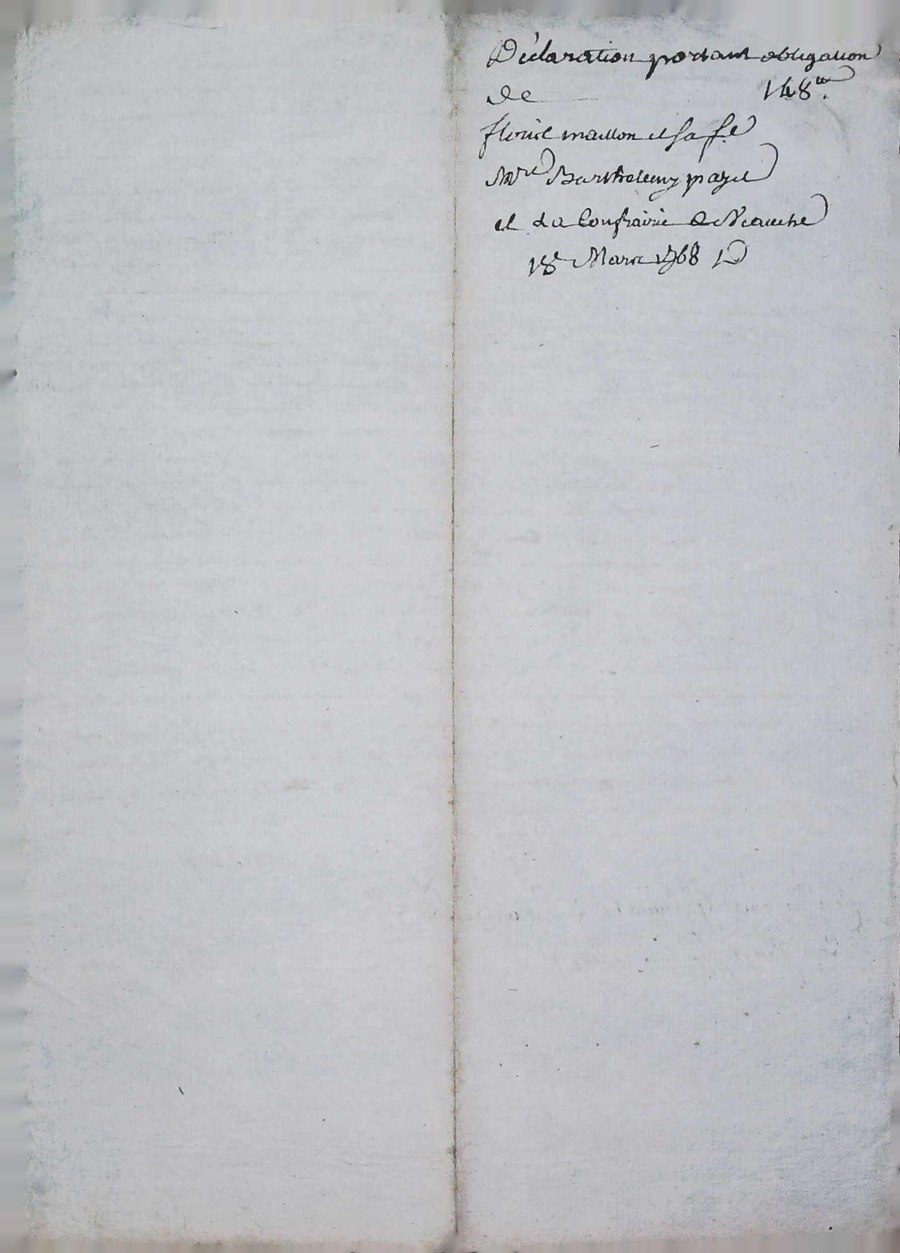 Déclaration portant obligation
de 148ᵗᵗ.
maillon et sa fe
Mre Barthelemy payet
et la Confrairie de
18e Mars 1768